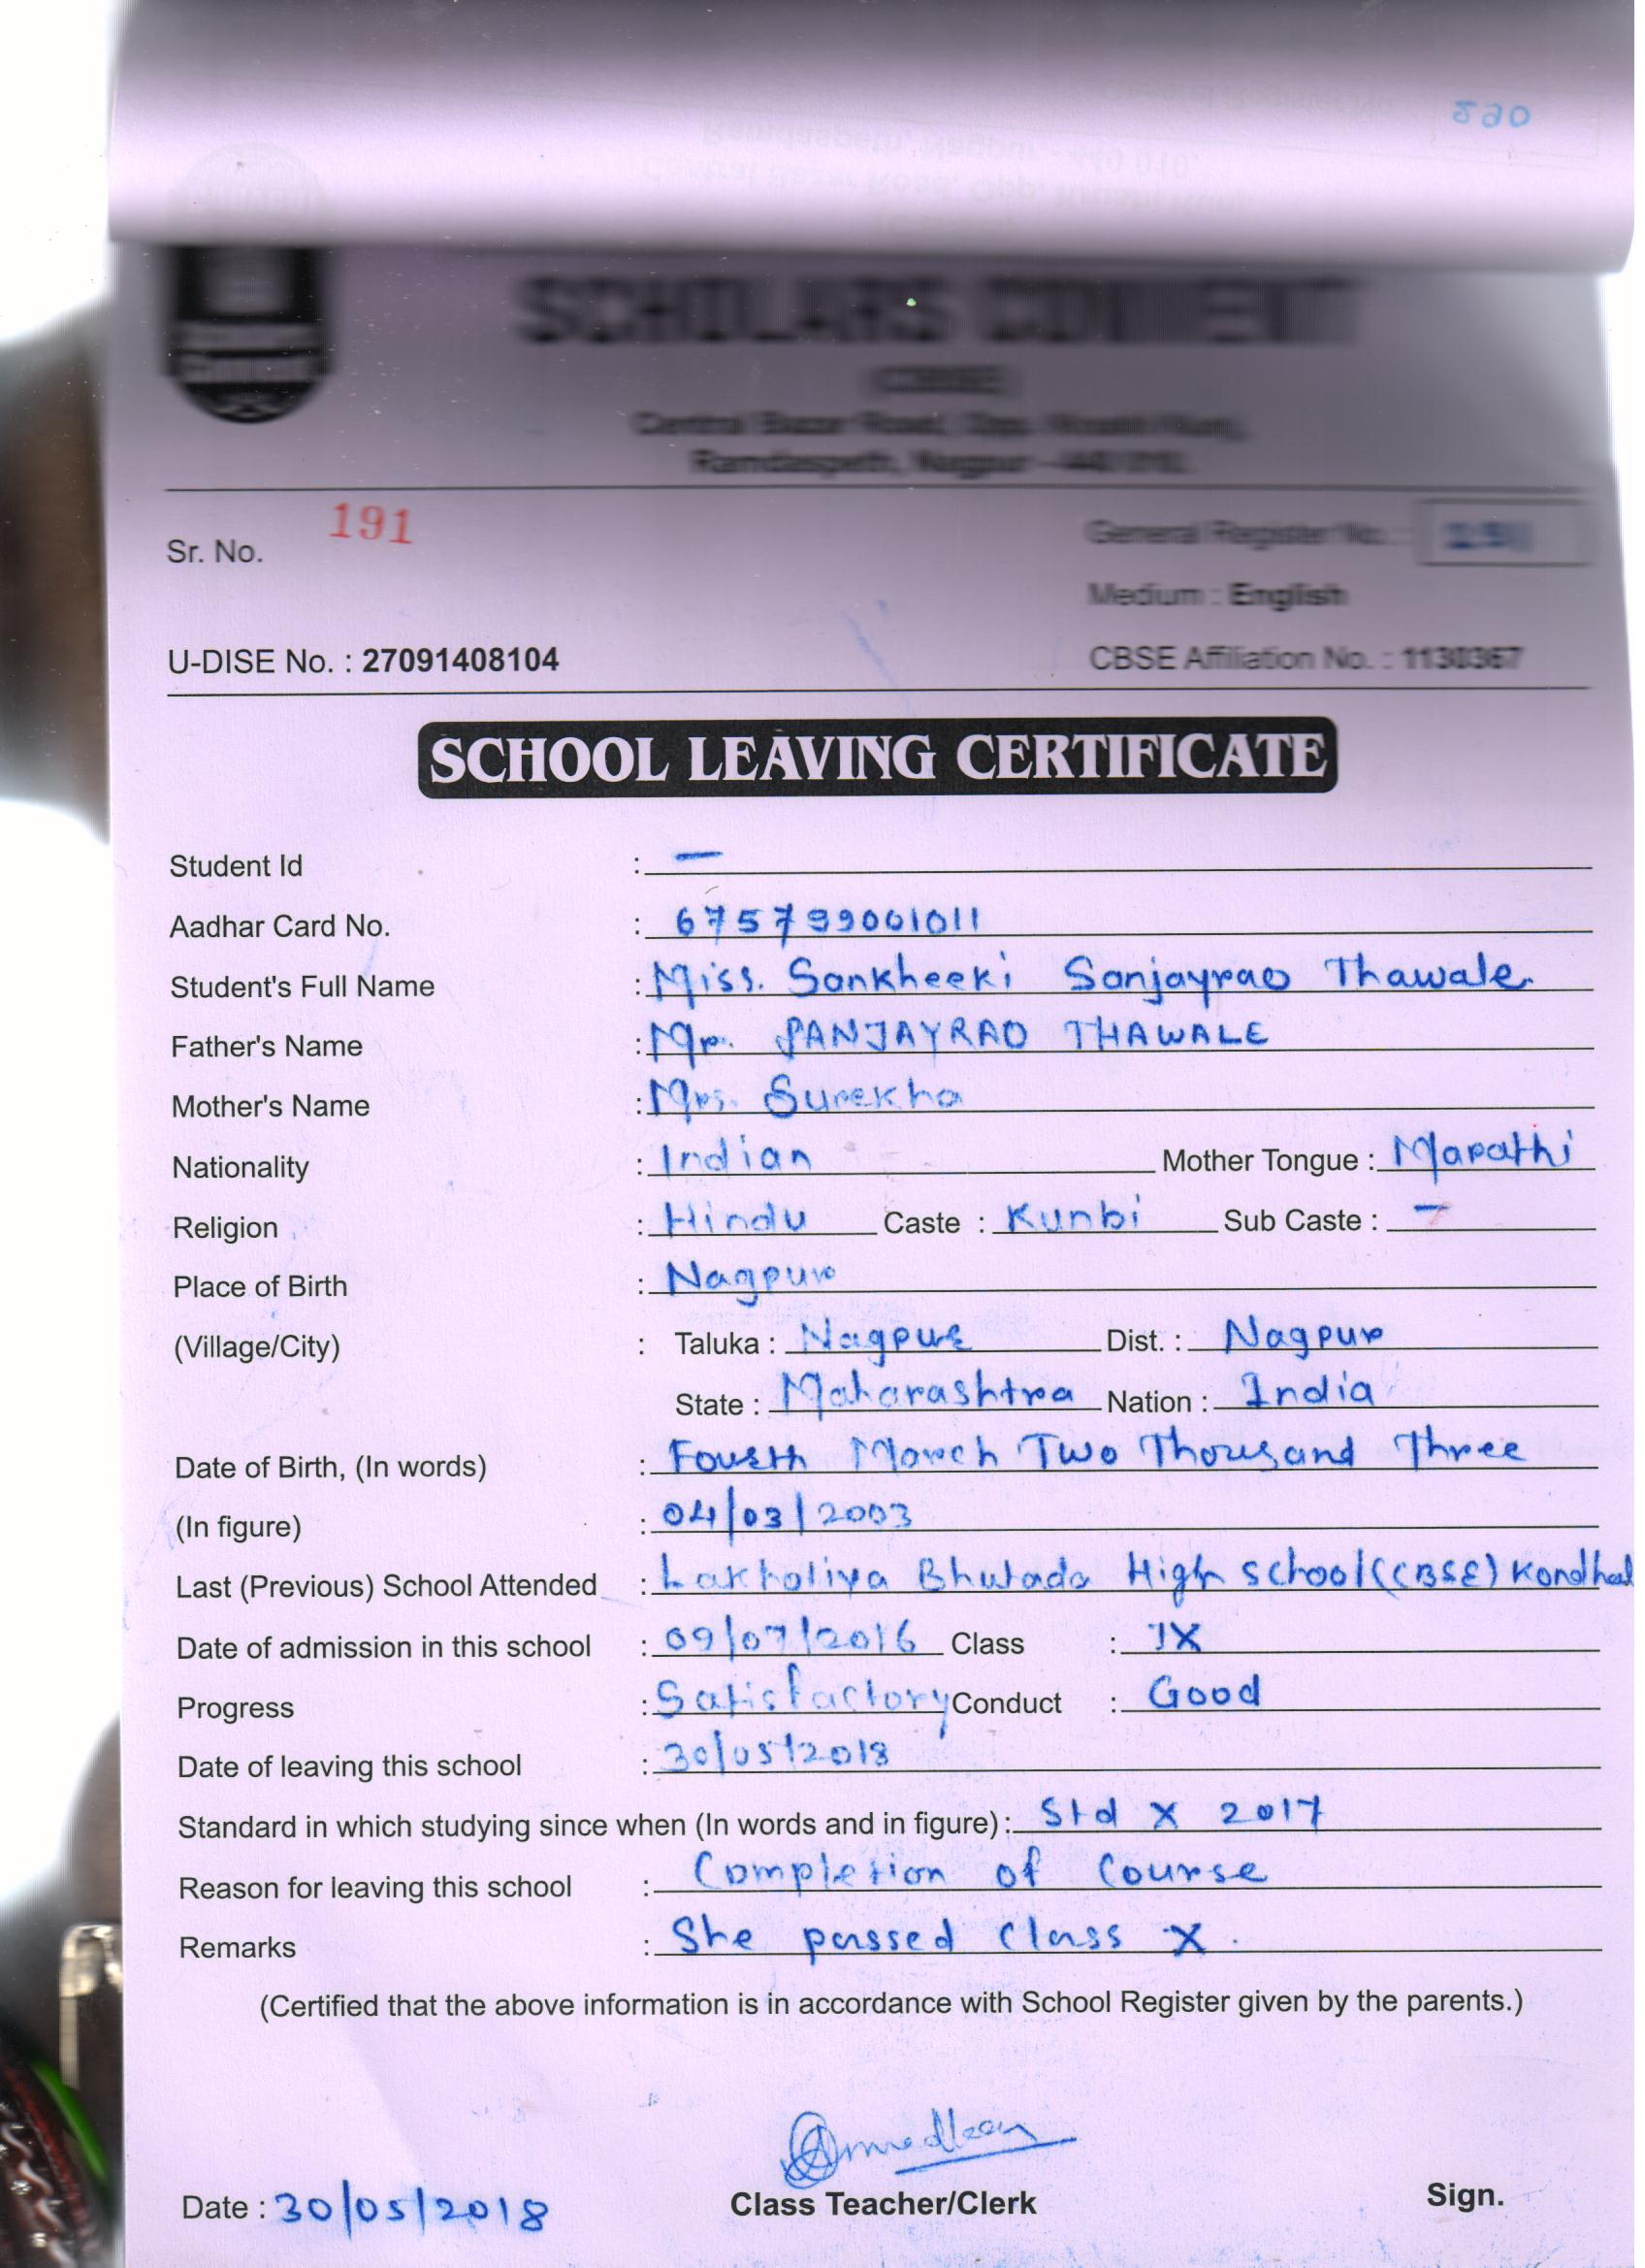 SCHOLARS CONVENT
(CBSE)
Central Bazar Road, Opp.
Ramdaspeth, Nagpur - 440 010.
Sr. No. 191 General Register No. :
Medium : English
U-DISE No. : 27091408104 CBSE Affiliation No. : 1130367
SCHOOL LEAVING CERTIFICATE
Student Id : —
Aadhar Card No. : 675799001011
Student's Full Name : Miss. Sankheeki Sanjayrao Thawale
Father's Name : Mr. SANJAYRAO THAWALE
Mother's Name : Mrs. Surekha
Nationality : Indian Mother Tongue : Marathi
Religion : Hindu Caste : Kunbi Sub Caste : —
Place of Birth : Nagpur
(Village/City) : Taluka : Nagpur Dist. : Nagpur
State : Maharashtra Nation : India
Date of Birth, (In words) : Fourth March Two Thousand Three
(In figure) : 04/03/2003
Last (Previous) School Attended : Lakholiya Bhutada High school (CBSE) Kondhali
Date of admission in this school : 09/07/2016 Class : IX
Progress : Satisfactory Conduct : Good
Date of leaving this school : 30/05/2018
Standard in which studying since when (In words and in figure) : Std X 2017
Reason for leaving this school : Completion of Course
Remarks : She passed Class X.
(Certified that the above information is in accordance with School Register given by the parents.)
Date : 30/05/2018 Class Teacher/Clerk Sign.